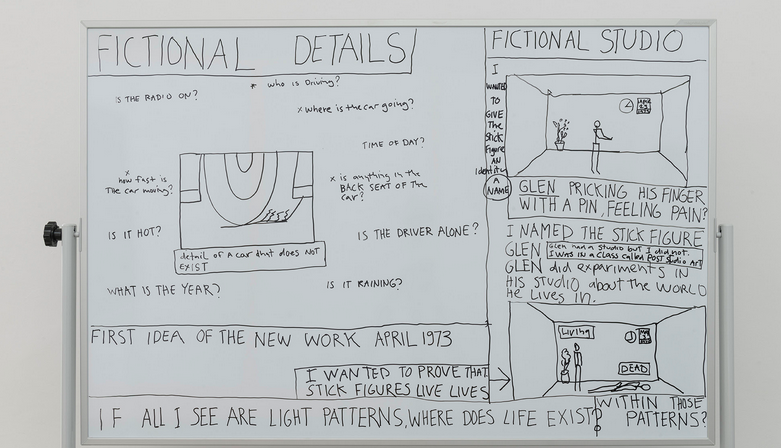 FICTIONAL DETAILS
* who is Driving?
IS THE RADIO ON?
x where is the car going?
TIME OF DAY?
x
how fast is
The car moving?
x is anything in the
BACK SEAT OF The
car?
IS IT HOT?
IS THE DRIVER ALONE?
detail of a car that does NOT
EXIST
WHAT IS THE YEAR?
IS IT RAINING?
FIRST IDEA OF THE NEW WORK APRIL 1973
I WANTED TO PROVE THAT
STICK FIGURES LIVE LIVES
FICTIONAL STUDIO
I
WANTED
TO
GIVE
The
Stick
Figure
AN
Identity
A
NAME
GLEN PRICKING HIS FINGER
WITH A PIN, FEELING PAIN?
I NAMED THE STICK FIGURE
GLEN
Glen had a Studio but I did not.
I WAS IN A CLASS called POST Studio Art
GLEN did experiments IN
HIS STUDIO about the WORLD
He Lives in.
Living
DEAD
IF ALL I SEE ARE LIGHT PATTERNS, WHERE DOES LIFE EXIST?
WITHIN THOSE
PATTERNS?